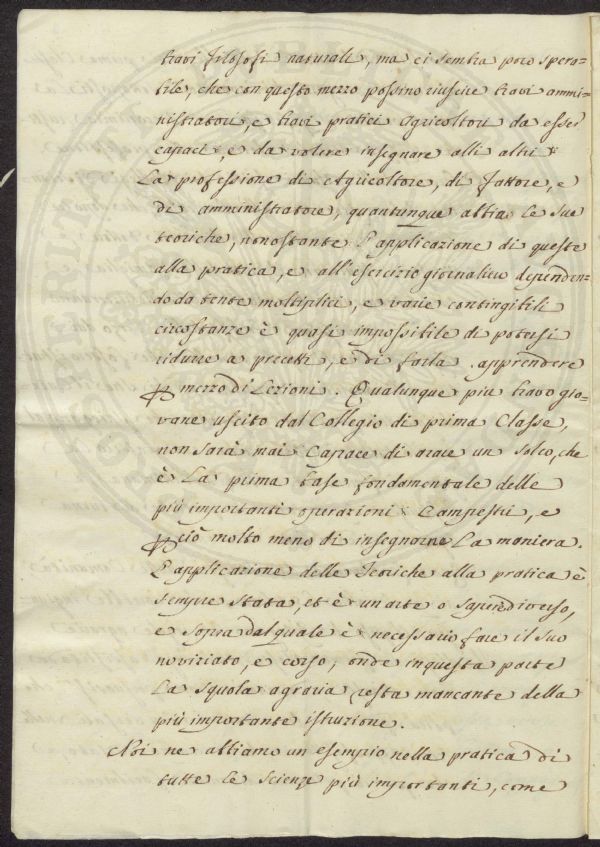 bravi filosofi naturali, ma ci sembra poco spera=
bile, che con questo mezzo possino riuscire bravi ammi=
nistratori, e bravi pratici Agricoltori da essei
capaci, e da volere insegnare alli altri
La professione di Agricoltore, di Fattore, e
di amministratore, quantunque abbia le sue
teoriche, nonostante l'applicazione di queste
alla pratica, e all'esercizio giornaliero dependen=
do da tante moltiplici, e varie contingibili
circostanze è quasi impossibile di potersi
ridurre a precetti, e di farla apprendere
mezzo di Lezioni. Qualunque più bravo gio=
vane uscito dal Collegio di prima Classe,
non sarà mai Capace di arare un Solco, che
è La prima base fondamentale delle
più importanti operazioni Campestri, e
ciò molto meno di insegnarne La maniera.
L'applicazione delle Teoriche alla pratica è
sempre stata, et è un arte o sapere diverso,
e sopra dal quale è necessario fare il suo
noviziato, e corso, onde in questa parte
La squola agraria resta mancante della
più importante istruzione.
Noi ne abbiamo un esempio nella pratica di
tutte le scienze più importanti, come